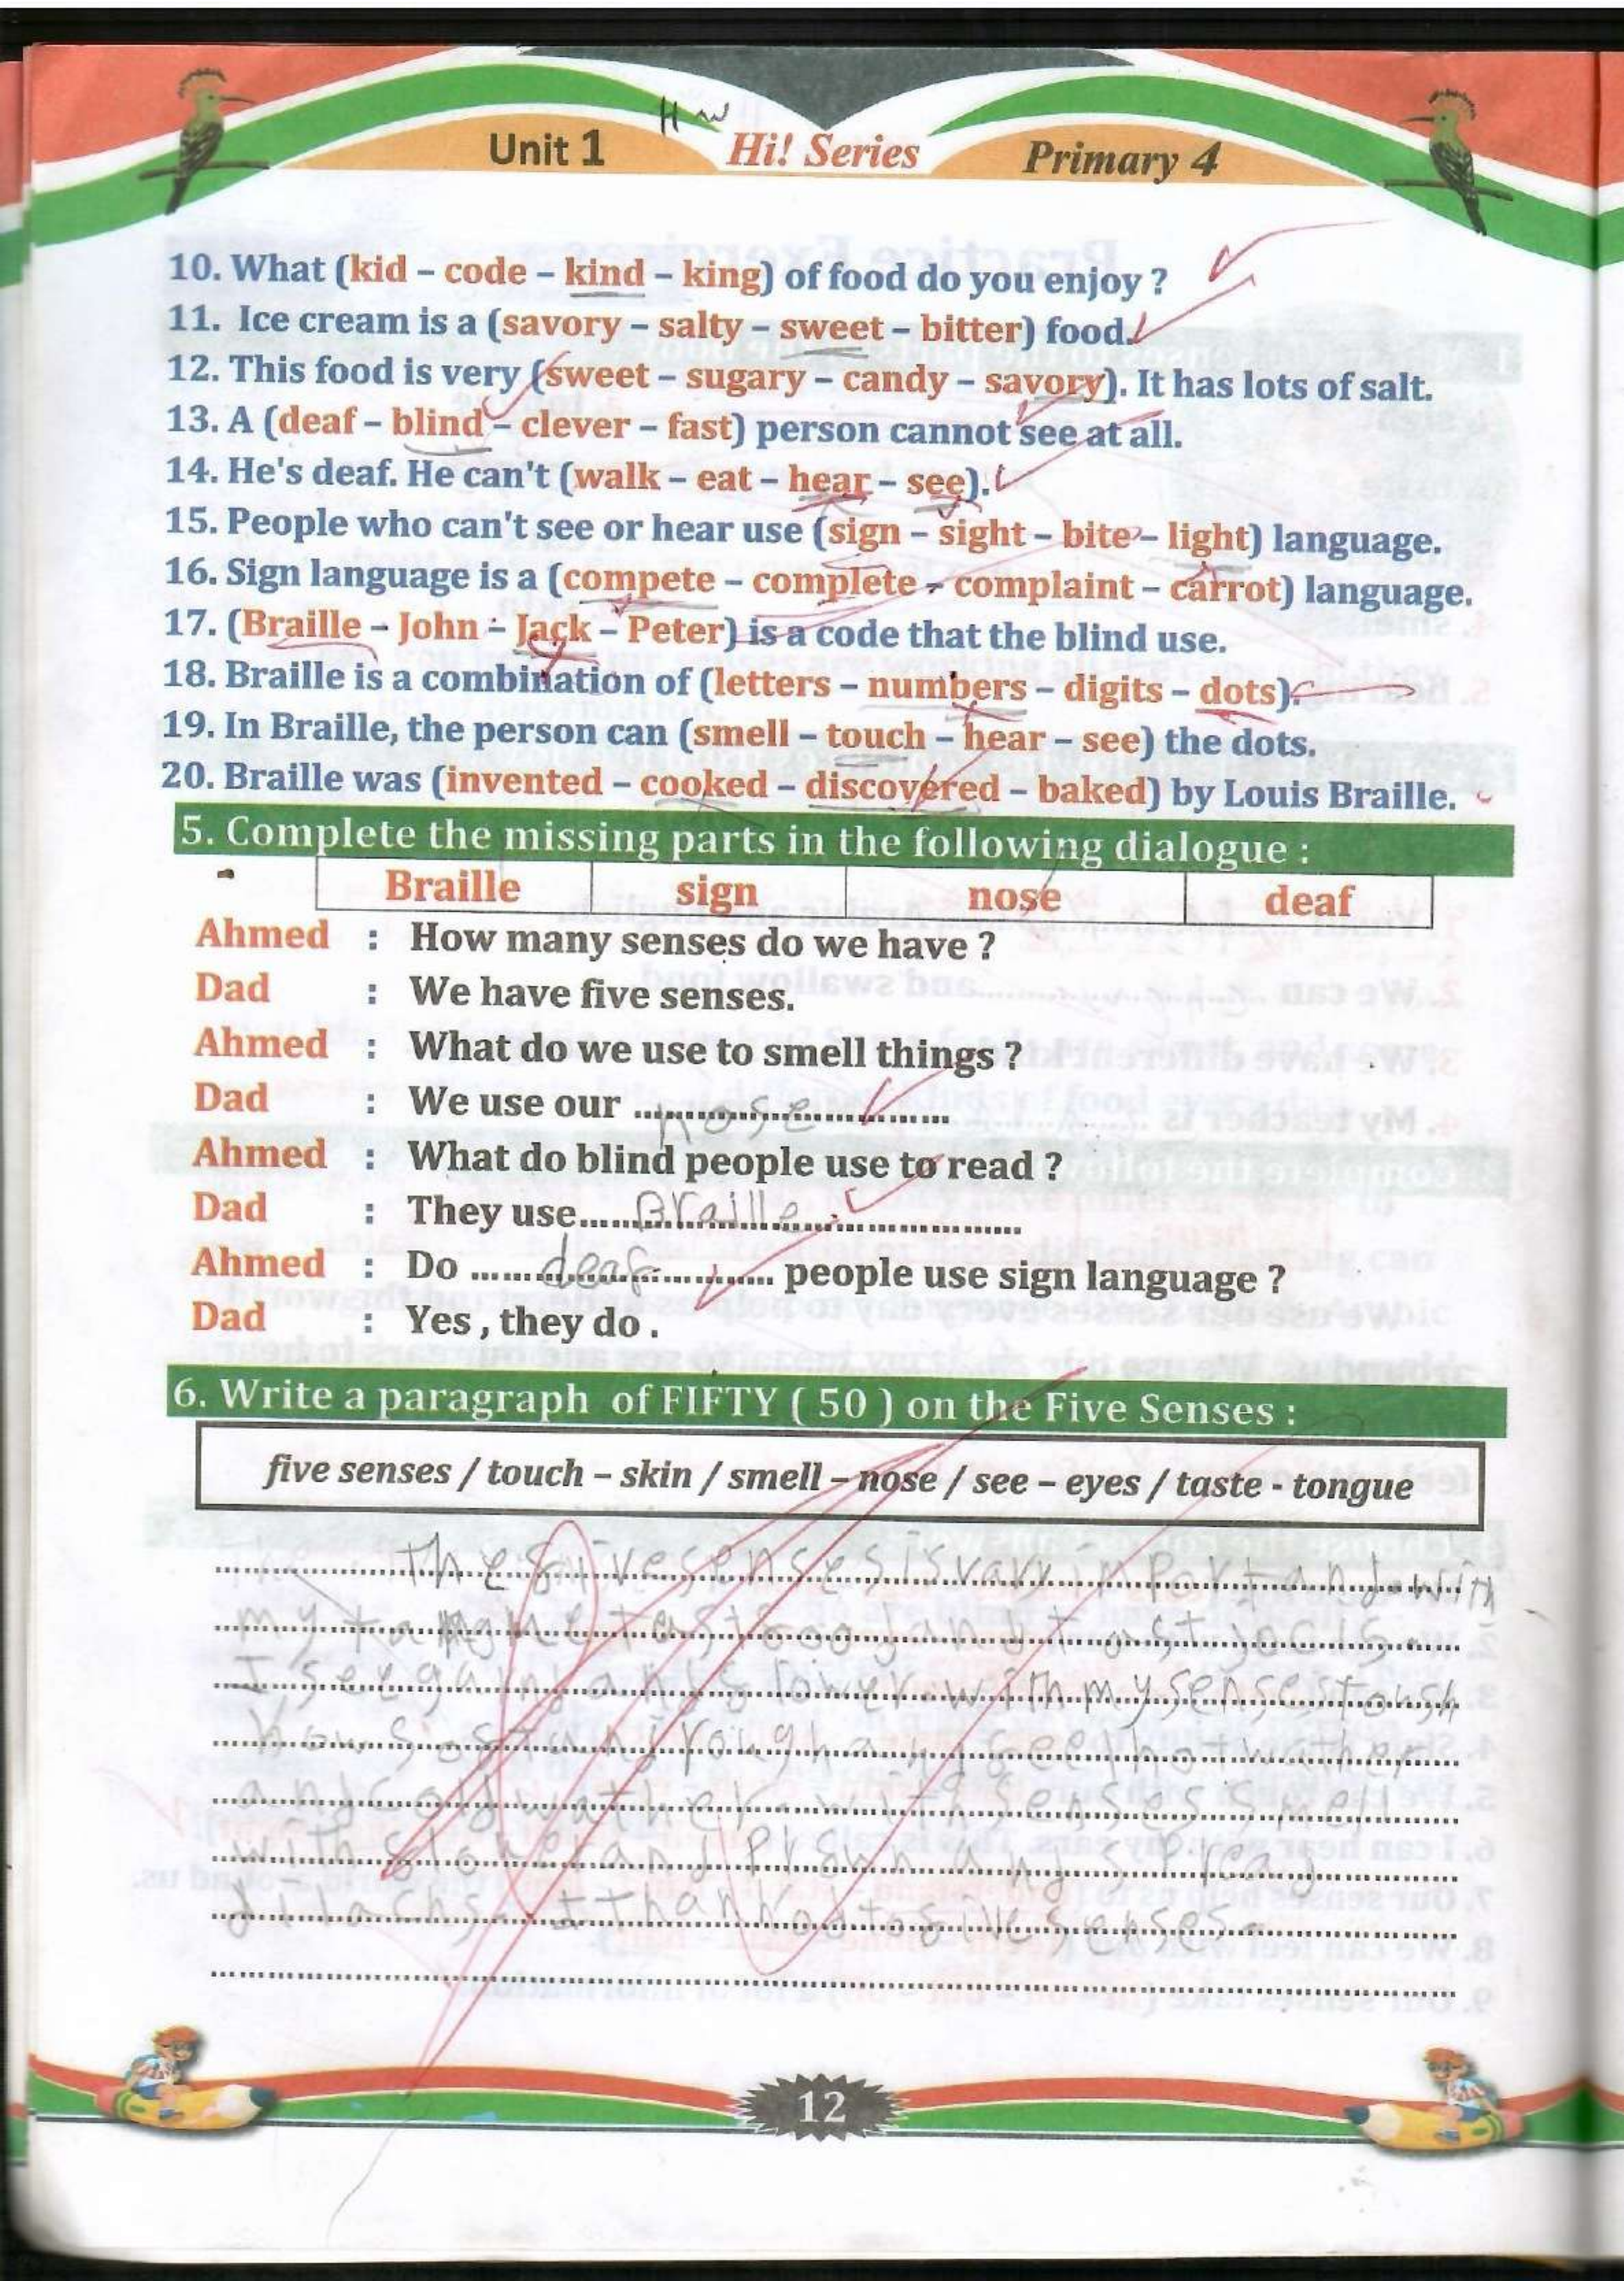 Unit 1
H w
Hi! Series
Primary 4
10. What (kid – code – kind – king) of food do you enjoy ?
11. Ice cream is a (savory – salty – sweet – bitter) food.
12. This food is very (sweet – sugary – candy – savory). It has lots of salt.
13. A (deaf – blind – clever – fast) person cannot see at all.
14. He's deaf. He can't (walk – eat – hear – see).
15. People who can't see or hear use (sign – sight – bite – light) language.
16. Sign language is a (compete – complete – complaint – carrot) language.
17. (Braille – John – Jack – Peter) is a code that the blind use.
18. Braille is a combination of (letters – numbers – digits – dots).
19. In Braille, the person can (smell – touch – hear – see) the dots.
20. Braille was (invented – cooked – discovered – baked) by Louis Braille.
5. Complete the missing parts in the following dialogue :
Braille sign nose deaf
Ahmed : How many senses do we have ?
Dad : We have five senses.
Ahmed : What do we use to smell things ?
Dad : We use our ........nose........
Ahmed : What do blind people use to read ?
Dad : They use......Braille............
Ahmed : Do ......deaf......... people use sign language ?
Dad : Yes , they do .
6. Write a paragraph of FIFTY ( 50 ) on the Five Senses :
five senses / touch – skin / smell – nose / see – eyes / taste - tongue
senses is vary with
my
I see and with my senses
how and rough and hot wather
and cold wather with senses smell
with and and
thank senses.
12